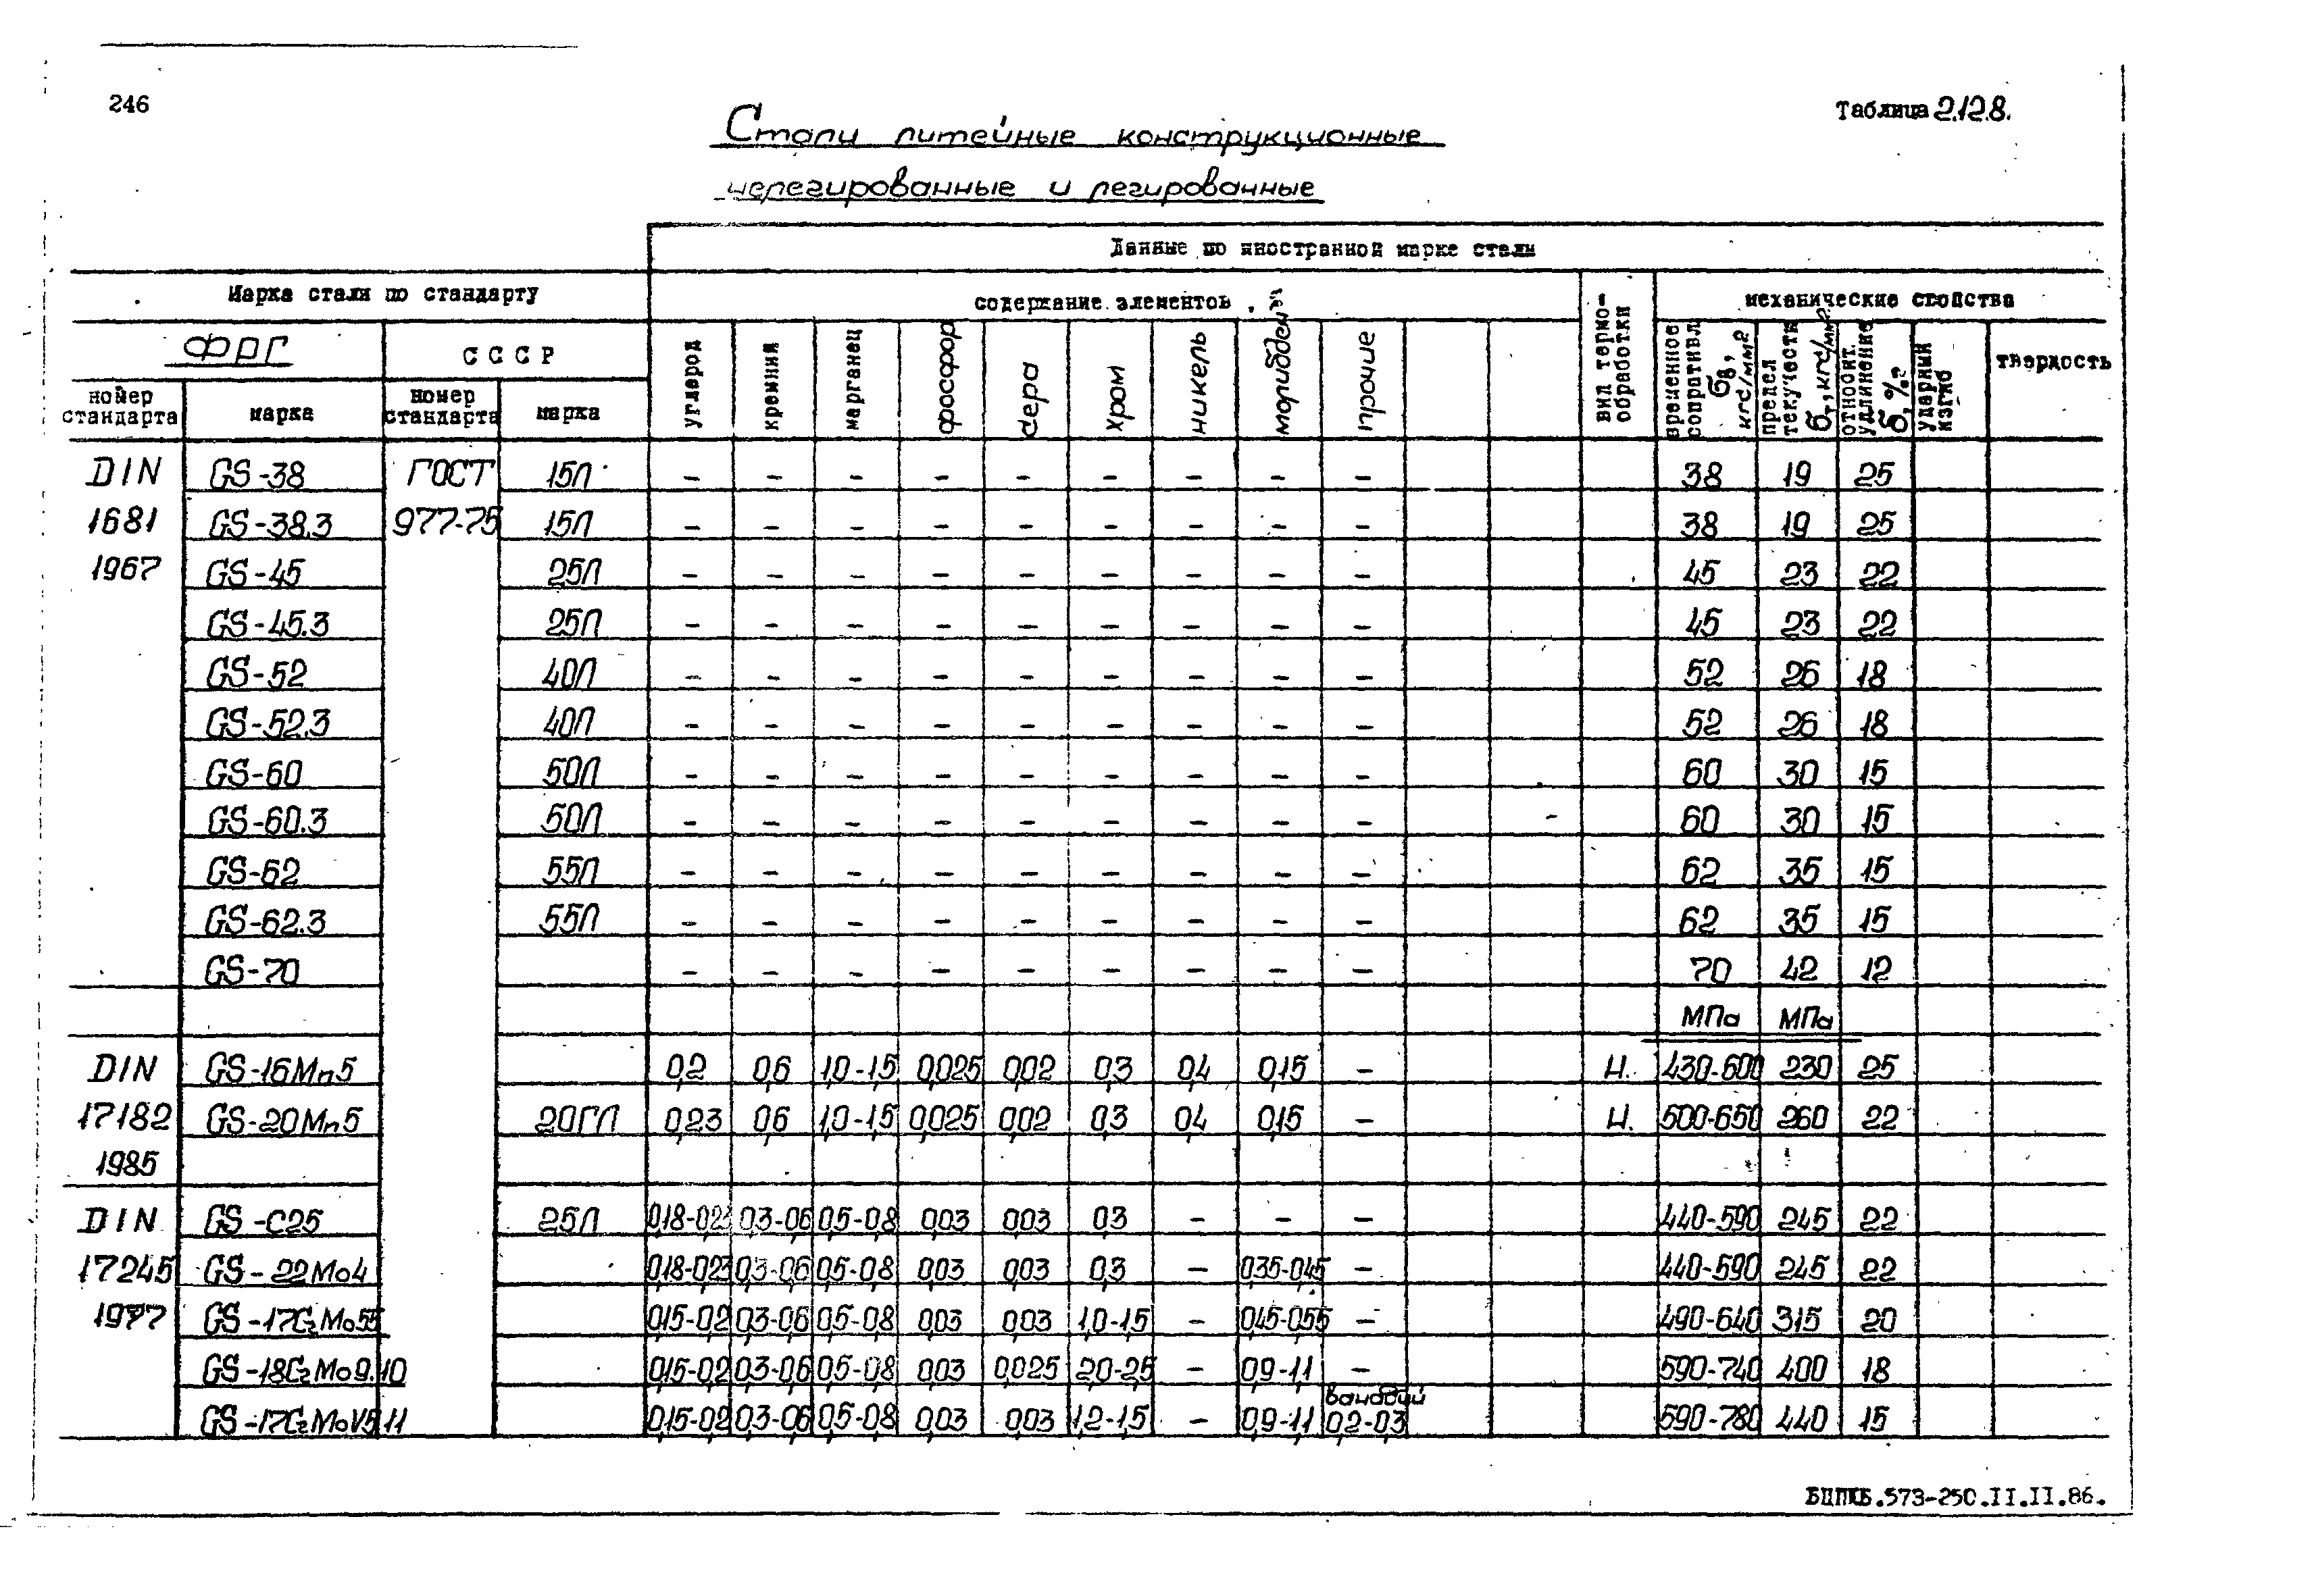 246
Таблица 2.12.8.
Стали литейные конструкционные
нелегированные и легированные
Данные по иностранной марке стали
Марка стали по стандарту
содержание элементов, %
вид термо-обработки
механические свойства
ФРГ
СССР
углерод кремний марганец фосфор сера хром никель молибден прочие
временное сопротивл. σв, кгс/мм2
предел текучести σт, кгс/мм2
относит. удлинение δ, %
ударный изгиб
твердость
номер стандарта марка номер стандарта марка
DIN GS-38 ГОСТ 15Л – – – – – – – – – 38 19 25
1681 GS-38.3 977-75 15Л – – – – – – – – – 38 19 25
1967 GS-45 25Л – – – – – – – – – 45 23 22
GS-45.3 25Л – – – – – – – – – 45 23 22
GS-52 40Л – – – – – – – – – 52 26 18
GS-52.3 40Л – – – – – – – – – 52 26 18
GS-60 50Л – – – – – – – – – 60 30 15
GS-60.3 50Л – – – – – – – – – 60 30 15
GS-62 55Л – – – – – – – – – 62 35 15
GS-62.3 55Л – – – – – – – – – 62 35 15
GS-70 – – – – – – – – – 70 42 12
МПа МПа
DIN GS-16Mn5 0,2 0,6 1,0-1,5 0,025 0,02 0,3 0,4 0,15 – Н. 430-600 230 25
17182 GS-20Mn5 20ГЛ 0,23 0,6 1,0-1,5 0,025 0,02 0,3 0,4 0,15 – Н. 500-650 260 22
1985
DIN GS-C25 25Л 0,18-0,23 0,3-0,6 0,5-0,8 0,03 0,03 0,3 – – – 440-590 245 22
17245 GS-22Mo4 0,18-0,23 0,3-0,6 0,5-0,8 0,03 0,03 0,3 – 0,35-0,45 – 440-590 245 22
1977 GS-17CrMo55 0,15-0,2 0,3-0,6 0,5-0,8 0,03 0,03 1,0-1,5 – 0,45-0,55 – 490-640 315 20
GS-18CrMo9.10 0,15-0,2 0,3-0,6 0,5-0,8 0,03 0,025 2,0-2,5 – 0,9-1,1 – 590-740 400 18
ванадий
GS-17CrMoV5 11 0,15-0,2 0,3-0,6 0,5-0,8 0,03 0,03 1,2-1,5 – 0,9-1,1 0,2-0,3 590-780 440 15
БЦПКБ.573-250.II.II.86.